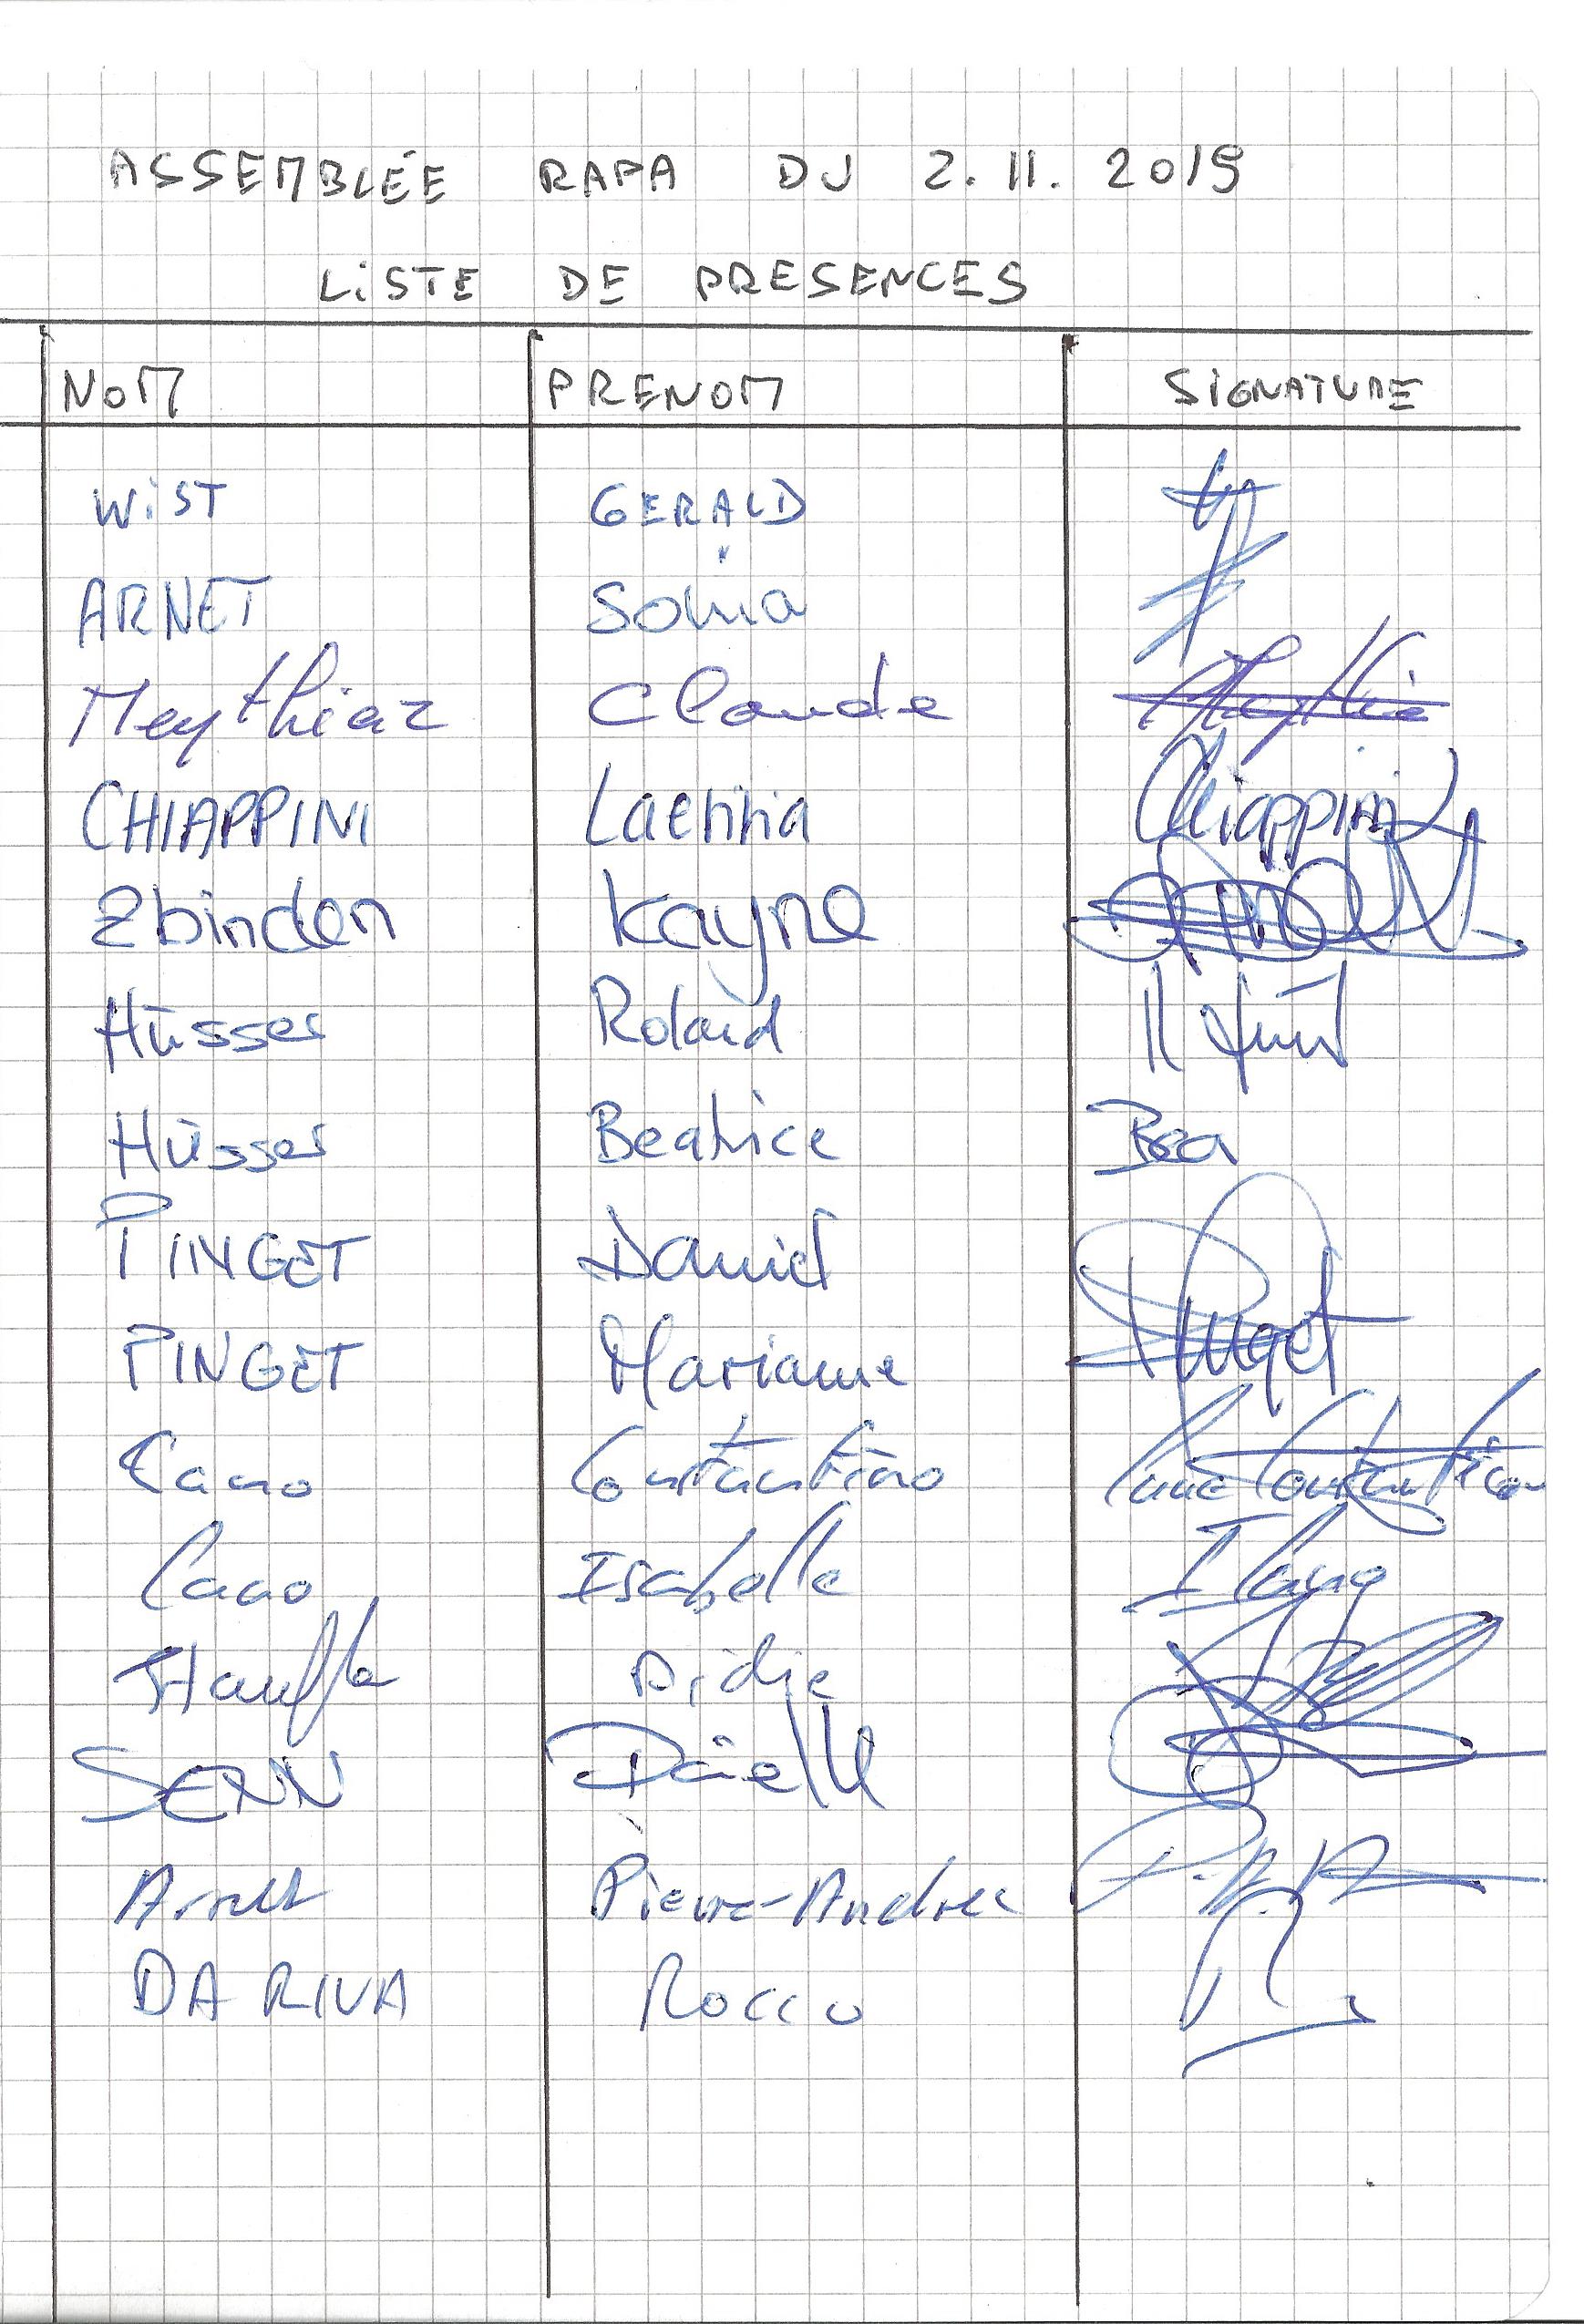 ASSEMBLÉE RAPA DU 2.11.2019
LISTE DE PRESENCES
NOM PRENOM SIGNATURE
WIST GERALD
ARNET Sonia
Meythiaz Claude
CHIAPPINI Laetitia Chiappini
Zbinden Kayne
Hüsser Roland
Hüsser Beatrice Bea
PINGET Daniel Pinget
PINGET Marianne
Cano Constantino Cano Constantino
Cano Isabelle I Cano
Didie
SENN Danielle
Arnet Pierre-André
DA RIVA Rocco